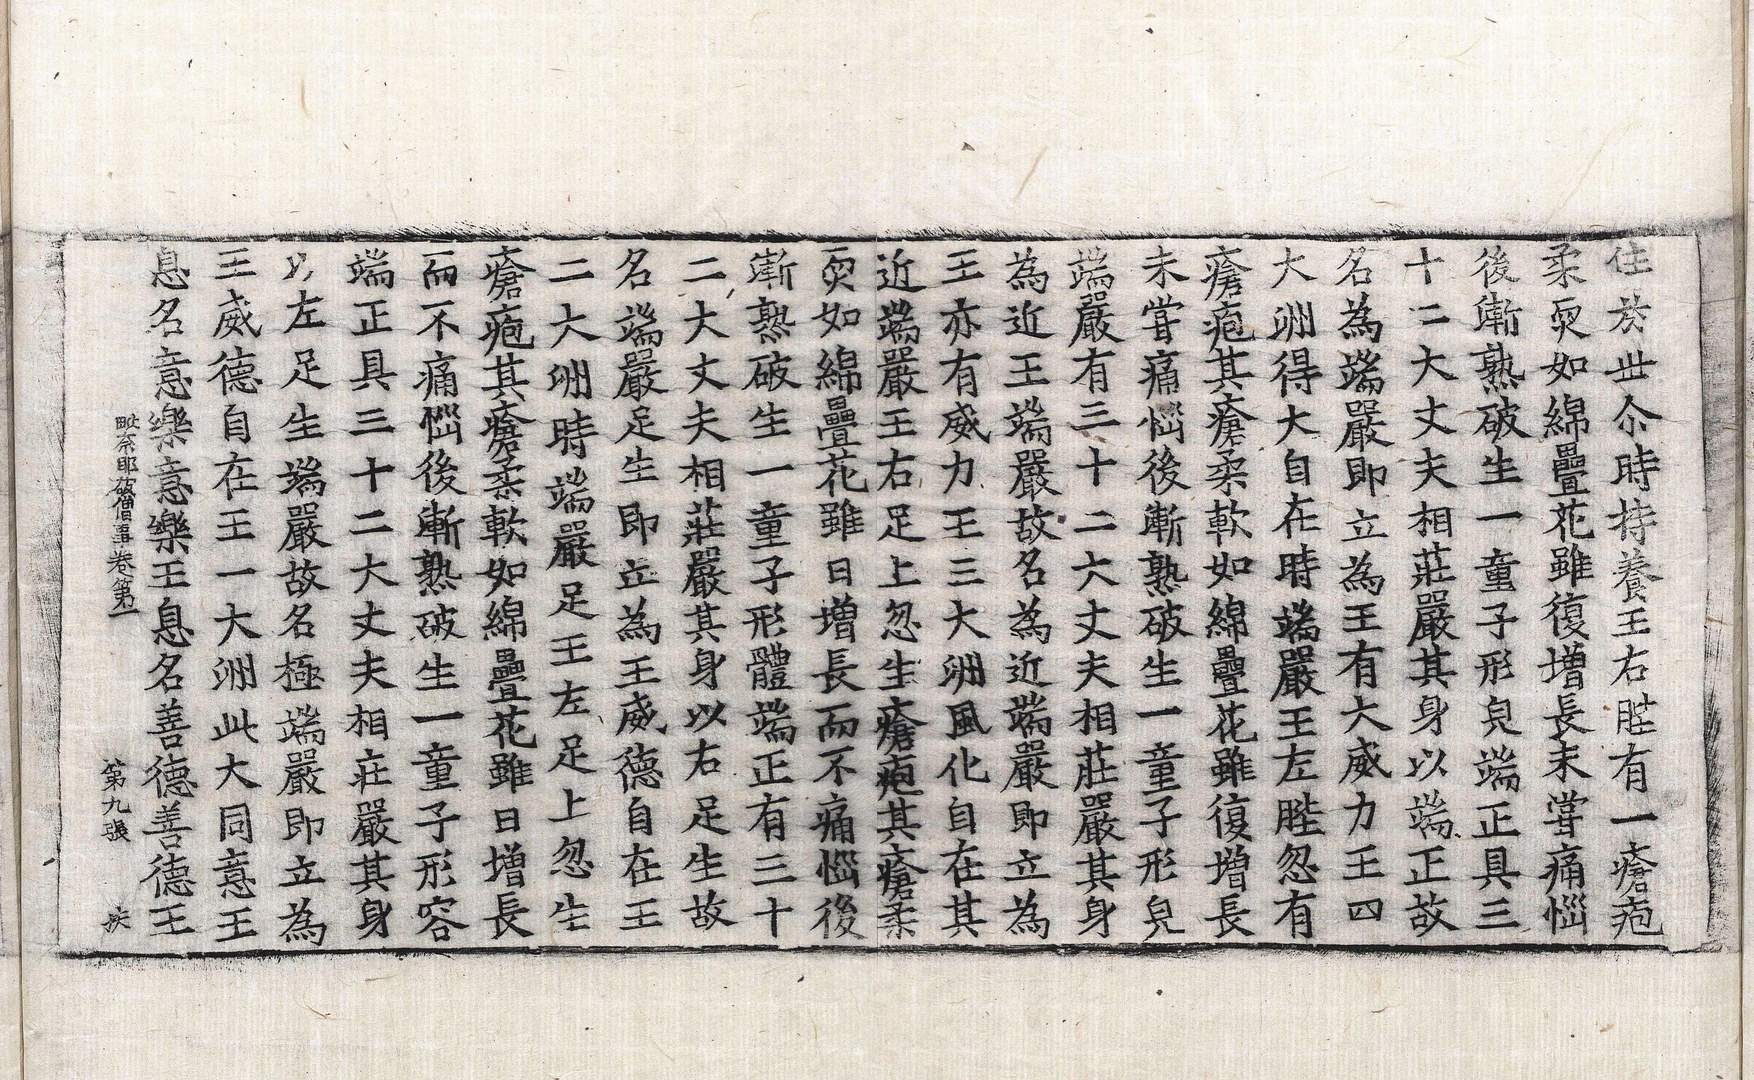 住於世尒時持養王右䏶有一瘡疱
柔耎如綿疊花雖復增長未嘗痛惱
後漸熟破生一童子形皃端正具三
十二大丈夫相莊嚴其身以端正故
名為端嚴即立為王有大威力王四
大洲得大自在時端嚴王左䏶忽有
瘡疱其瘡柔軟如綿疊花雖復增長
未嘗痛惱後漸熟破生一童子形皃
端嚴有三十二大丈夫相莊嚴其身
為近王端嚴故名為近端嚴即立為
王亦有威力王三大洲風化自在其
近端嚴王右足上忽生瘡疱其瘡柔
耎如綿疊花雖日增長而不痛惱後
漸熟破生一童子形體端正有三十
二大丈夫相莊嚴其身以右足生故
名端嚴足生即立為王威德自在王
二大洲時端嚴足王左足上忽生
瘡疱其瘡柔軟如綿疊花雖日增長
而不痛惱後漸熟破生一童子形容
端正具三十二大丈夫相莊嚴其身
以左足生端嚴故名極端嚴即立為
王威德自在王一大洲此大同意王
息名意樂意樂王息名善德善德王
毗奈耶破僧事卷第一 第九張 疾